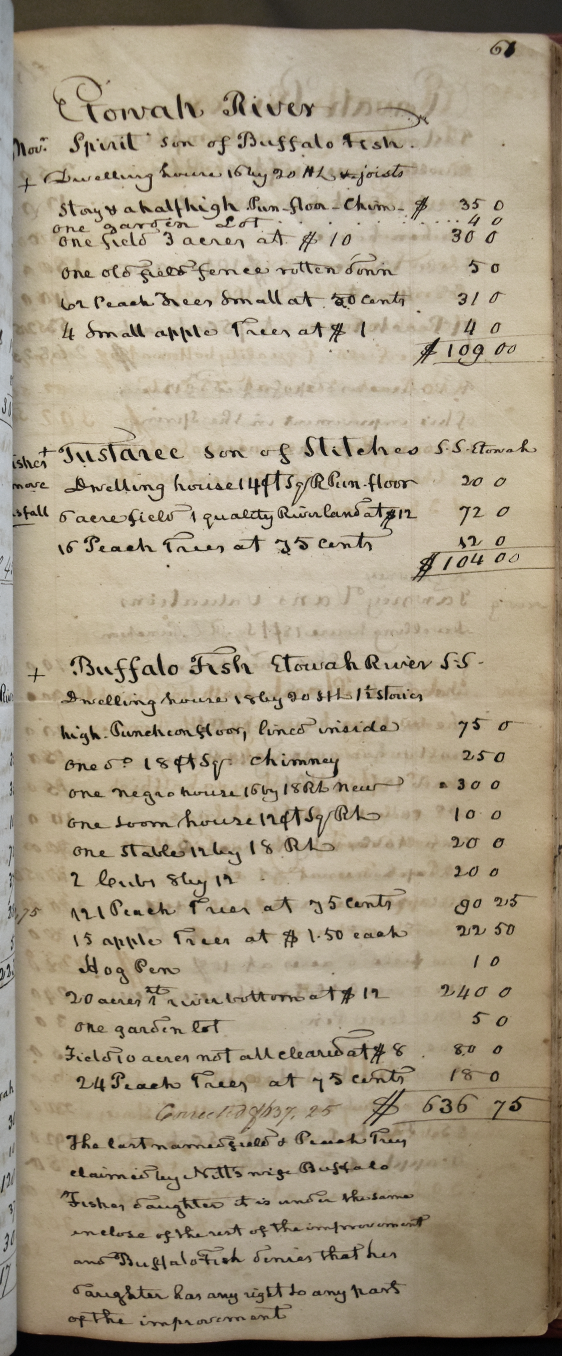 61
Etowah River
Nov. Spirit son of Buffalo Fish.
+ Dwelling house 16 by 20 HL & joists
Story & a half high Pun-floor-Chim- $ 35 0
one garden Lot 4 0
one field 3 acres at $10 30 0
one old field fence rotten down 5 0
62 Peach Trees Small at 50 cents 31 0
4 Small apple Trees at $1 4 0
$ 109 00
+ Tustaree son of Stitches S.S. Etowah
Dwelling house 14 ft Sqr R Pun-floor 20 0
6 acre field 1 quality River land at $12 72 0
16 Peach Trees at 75 cents 12 0
$ 104 00
+ Buffalo Fish Etowah River S.S-
Dwelling house 18 by 20 1½ stories
high-Puncheon floor, lined inside 75 0
one do 18 ft Sqr chimney 25 0
one negro house 16 by 18 Rh New 30 0
one Loom house 12 ft Sqr Rh 10 0
one Stable 12 by 18 Rh 20 0
2 Cribs 8 by 12 20 0
121 Peach Trees at 75 cents 90 25
15 apple Trees at $1.50 each 22 50
Hog Pen 1 0
20 acres river bottom at $12 240 0
one garden lot 5 0
Field 10 acres not all cleared at $8 80 0
24 Peach Trees at 75 cents 18 0
Correct.d $637.25 $ 636 75
The last named field & Peach Trees
claimed by wife Buffalo
Fishes daughter it is under the same
inclose of the rest of the improvement
and Buffalo Fish denies that her
daughter has any right to any part
of the improvement